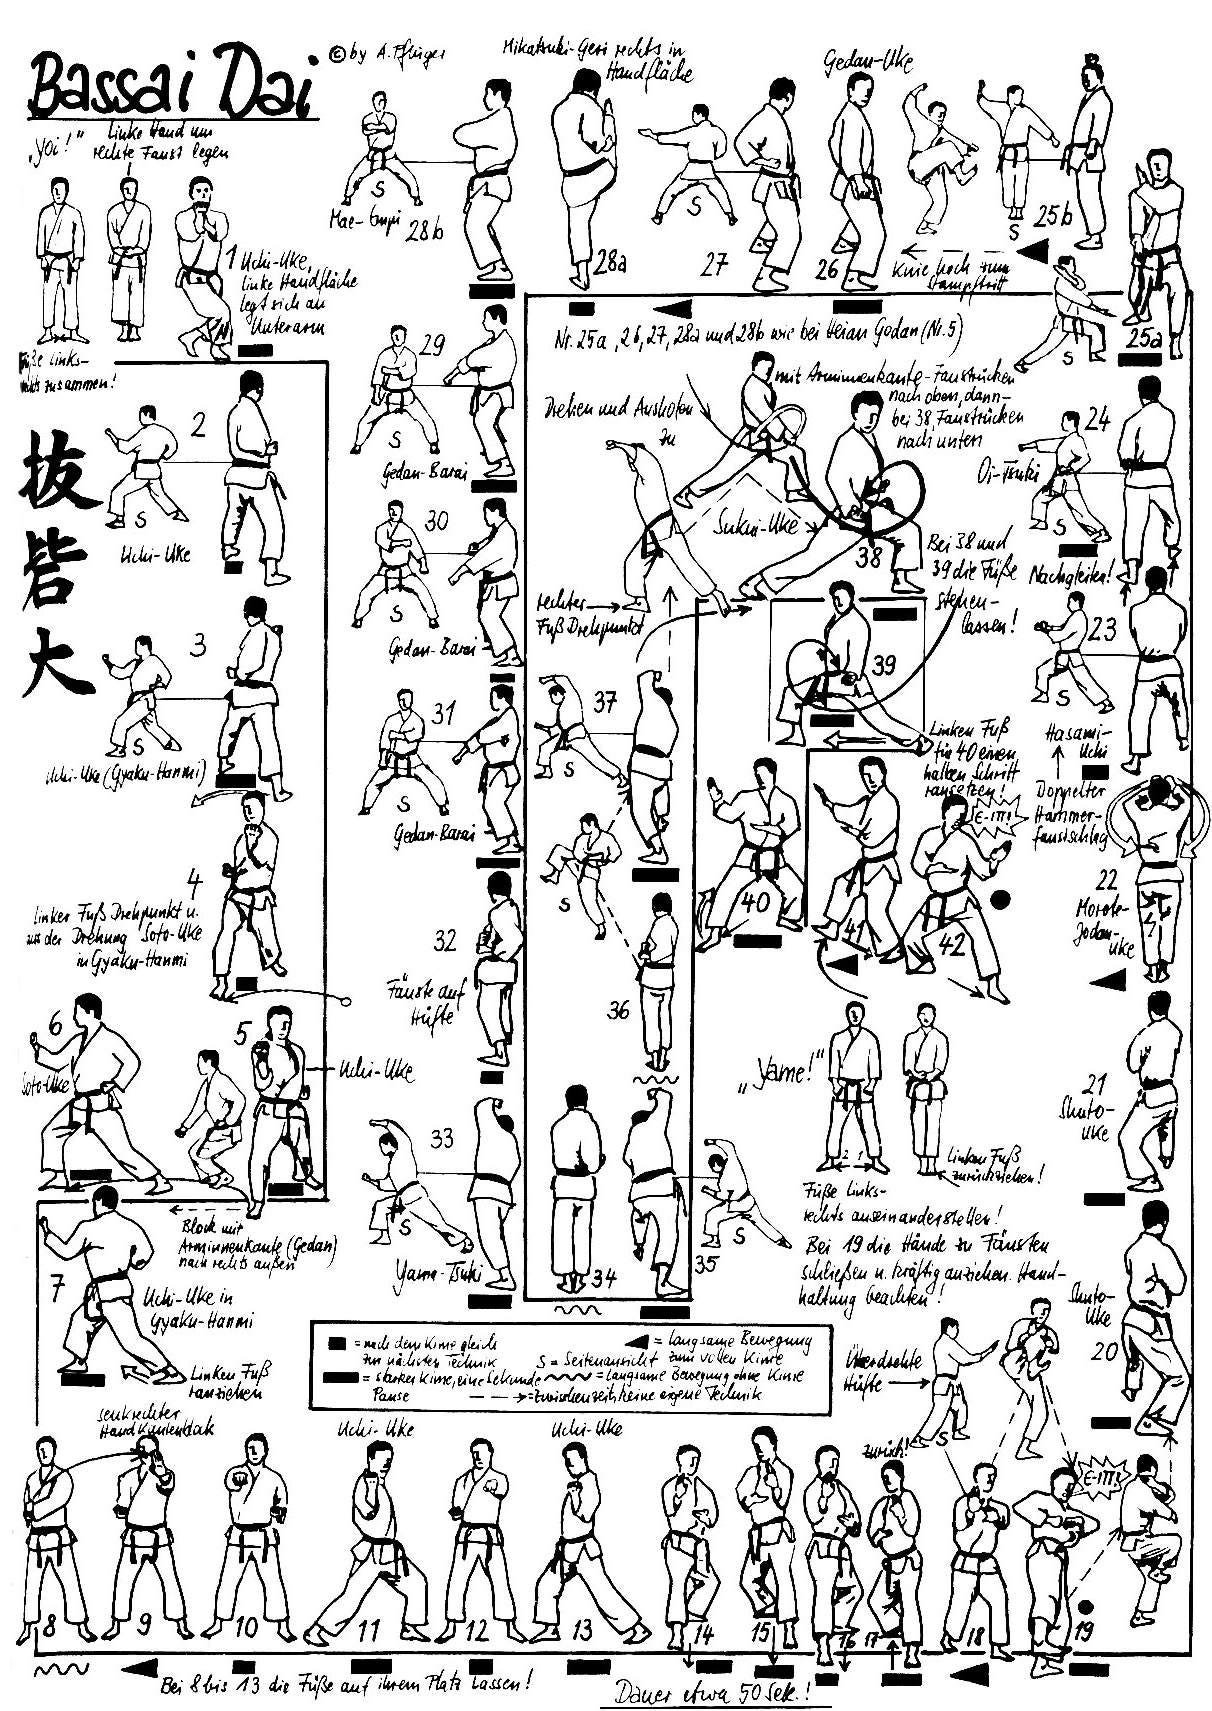 Bassai Dai
© by A. Pflüger
„Yoi!“
Linke Hand um
rechte Faust legen
Füße links-
rechts zusammen!
抜
砦
大
1
Uchi-Uke,
linke Handfläche
legt sich an
Unterarm
2
S
Uchi-Uke
3
S
Uchi-Uke (Gyaku-Hanmi)
4
Linker Fuß Drehpunkt u.
aus der Drehung Soto-Uke
in Gyaku-Hanmi
5
Uchi-Uke
6
Soto-Uke
Block mit
Arminnenkante (Gedan)
nach rechts außen
7
Uchi-Uke in
Gyaku-Hanmi
Linken Fuß
ranziehen
senkrechter
Handkantenblock
8
9
10
Uchi-Uke
11
12
Uchi-Uke
13
14
15
16
17
zurück!
18
Überdrehte
Hüfte
S
19
E-ITT!
Bei 8 bis 13 die Füße auf ihrem Platz lassen!
Dauer etwa 50 Sek.!
Shuto-
Uke
20
21
Shuto-
Uke
22
Morote-
Jodan-
Uke
23
S
Hasami-
Uchi
Doppelter
Hammer-
faustschlag
24
Oi-Tsuki
S
Nachgleiten!
25a
S
25b
S
Knie hoch zum
Stampftritt
Gedan-Uke
26
27
S
Mikatsuki-Geri rechts in
Handfläche
28a
Mae-Empi
28b
S
Nr. 25a, 26, 27, 28a und 28b wie bei Heian Godan (Nr. 5)
29
S
Gedan-Barai
30
S
Gedan-Barai
31
S
Gedan-Barai
32
Fäuste auf
Hüfte
33
S
Yama-Tsuki
34
35
S
36
S
37
S
rechter
Fuß Drehpunkt
Drehen und Ausholen
zu
mit Arminnenkante-Faustrücken
nach oben, dann
bei 38 Faustrücken
nach unten
Sukui-Uke
38
Bei 38 und
39 die Füße
stehen-
lassen!
39
Linken Fuß
für 40 einen
halben Schritt
ransetzen!
40
41
42
E-ITT!
„Yame!“
2 1
Linken Fuß
zurückziehen!
Füße links-
rechts auseinanderstellen!
Bei 19 die Hände zu Fäusten
schließen u. kräftig anziehen. Hand-
haltung beachten!
= nach dem Kime gleich
zur nächsten Technik
= starker Kime, eine Sekunde
Pause
= langsame Bewegung
zum vollen Kime
S = Seitenansicht
= langsame Bewegung ohne Kime
= Zwischenzeit, keine eigene Technik